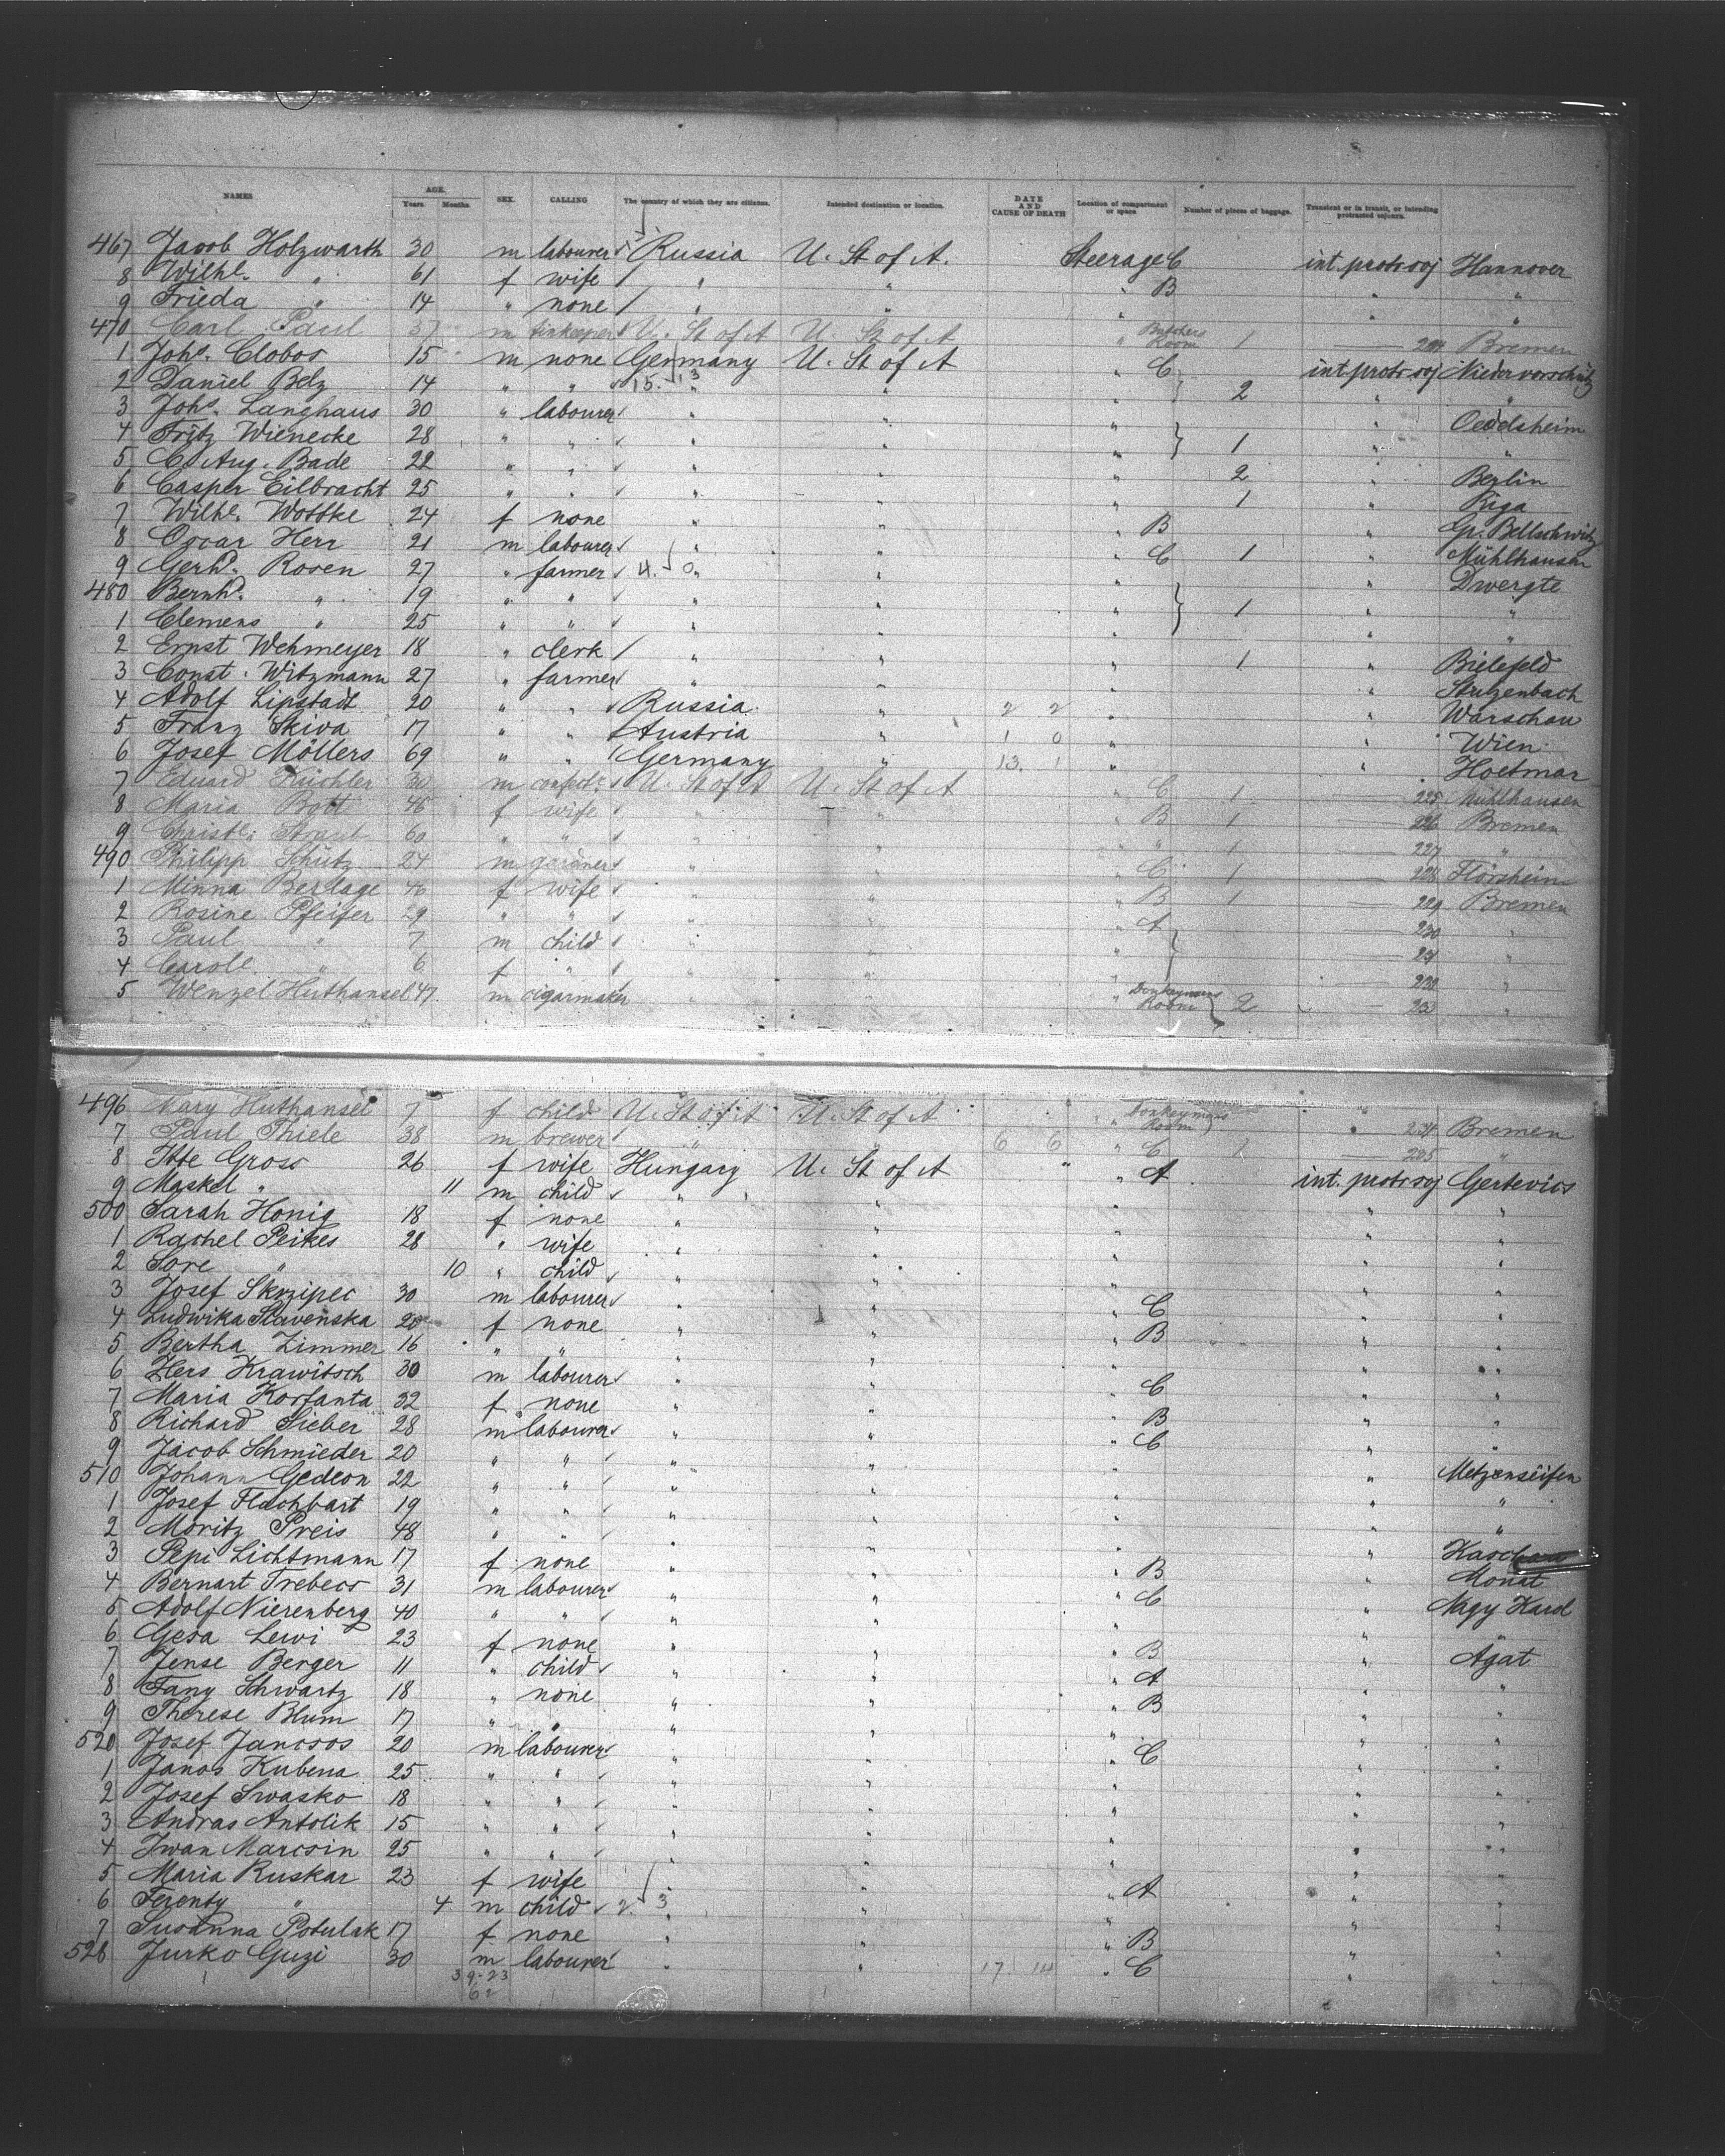 NAMES AGE. Years Months SEX. CALLING The country of which they are citizens. Intended destination or location. DATE AND CAUSE OF DEATH Location of compartment or space Number of pieces of baggage. Transient or in transit, or intending protracted sojourn.
467 Jacob Holzwarth 30 m labourer Russia U. St of A. Steerage C int. protr. soj Hannover
8 Wilhe. " 61 f wife " " " B " "
9 Frieda " 14 " none " " " " "
470 Carl Paul 37 m U. St of A U. St of A " Butchers Room 1 — 224 Bremen
1 Johs. Clobos 15 m none Germany U. St of A " C int. protr. soj Niedervorschütz
2 Daniel Belz 14 " " 15. 13 " " } 2 " "
3 Johs. Langhaus 30 " labourer " " " " Oedelsheim
4 Fritz Wienecke 28 " " " " " } 1 " "
5 C. Aug. Bade 22 " " " " " 2 " Berlin
6 Casper Eilbracht 25 " " " " " 1 " Riga
7 Wilhe. Wottke 24 f none " " " B " Gr. Bellschwitz
8 Oscar Herr 21 m labourer " " " C 1 " Mühlhausen
9 Gerhd. Rosen 27 " farmer 4. 0 " " " Dwergte
480 Bernhd. " 19 " " " " " } 1 " "
1 Clemens " 25 " " " " " " "
2 Ernst Wehmeyer 18 " clerk " " " 1 " Bielefeld
3 Const. Witzmann 27 " farmer " " " Stutzenbach
4 Adolf Lipstadt 20 " " Russia " 2 2 " " Warschau
5 Franz Skiva 17 " " Austria " 1 0 " " Wien
6 Josef Möllers 69 " " Germany " 13. 1 " " Hoetmar
7 Eduard Küchler 30 m confect. U. St of A U. St of A " C 1 — 225 Mühlhausen
8 Maria Bott 46 f wife " " " B 1 — 226 Bremen
9 Christe. Straub 60 " " " " " " 1 — 227 "
490 Philipp Schütz 24 m gardner " " " C 1 — 228 Flörsheim
1 Minna Berlage 46 f wife " " " B 1 — 229 Bremen
2 Rosine Pfeifer 29 " " " " " A — 230 "
3 Paul " 7 m child " " " — 231 "
4 Carole. " 6 f " " " " — 232 "
5 Wenzel Huthansel 47 m cigarmaker " " " Donkeymans Room } 2 — 233 "
496 Mary Huthansel 7 f child U. St of A U. St of A " Donkeymans Room — 234 Bremen
7 Paul Thiele 38 m brewer " " 6 6 " C 1 — 235 "
8 Itte Gross 26 f wife Hungary U. St of A " " A int. protr. soj Gertevics
9 Maskel " 11 m child " " " " "
500 Sarah Honig 18 f none " " " " "
1 Rachel Peikes 28 " wife " " " " "
2 Sore " 10 " child " " " " "
3 Josef Skrzipec 30 m labourer " " " C " "
4 Ludwika Slavenska 20 f none " " " B " "
5 Bertha Zimmer 16 " " " " " " "
6 Hers Krawitsch 30 m labourer " " " C " "
7 Maria Korfanta 32 f none " " " B " "
8 Richard Sieber 28 m labourer " " " C " "
9 Jacob Schmieder 20 " " " " " " Metzenseifen
510 Johann Gedeon 22 " " " " " " "
1 Josef Flachbart 19 " " " " " " "
2 Moritz Preis 48 " " " " " "
3 Pepi Lichtmann 17 f none " " " B "
4 Bernart Trebecs 31 m labourer " " " C " Monat
5 Adolf Nierenberg 40 " " " " " " Nagy Karol
6 Gesa Lewi 23 f none " " " B " "
7 Jense Berger 11 " child " " " A " Agat
8 Fany Schwartz 18 " none " " " B " "
9 Therese Blum 17 " " " " " " "
520 Josef Jancsos 20 m labourer " " " C " "
1 Janos Kubena 25 " " " " " " "
2 Josef Swasko 18 " " " " " " "
3 Andras Antolik 15 " " " " " " "
4 Iwan Marcsin 25 " " " " " " "
5 Maria Ruskar 23 f wife " " " A " "
6 Ferenty " 4 m child 2. 3 " " " " "
7 Susanna Potulak 17 f none " " " B " "
528 Jurko Guzi 30 m labourer " " 17. 14 " C " "
39-23
62